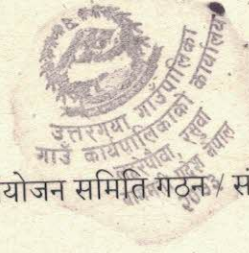 उत्तरगया गाउँपालिका
गाउँ कार्यपालिकाको कार्यालय
रसुवा
योजन समिति गठन / सं